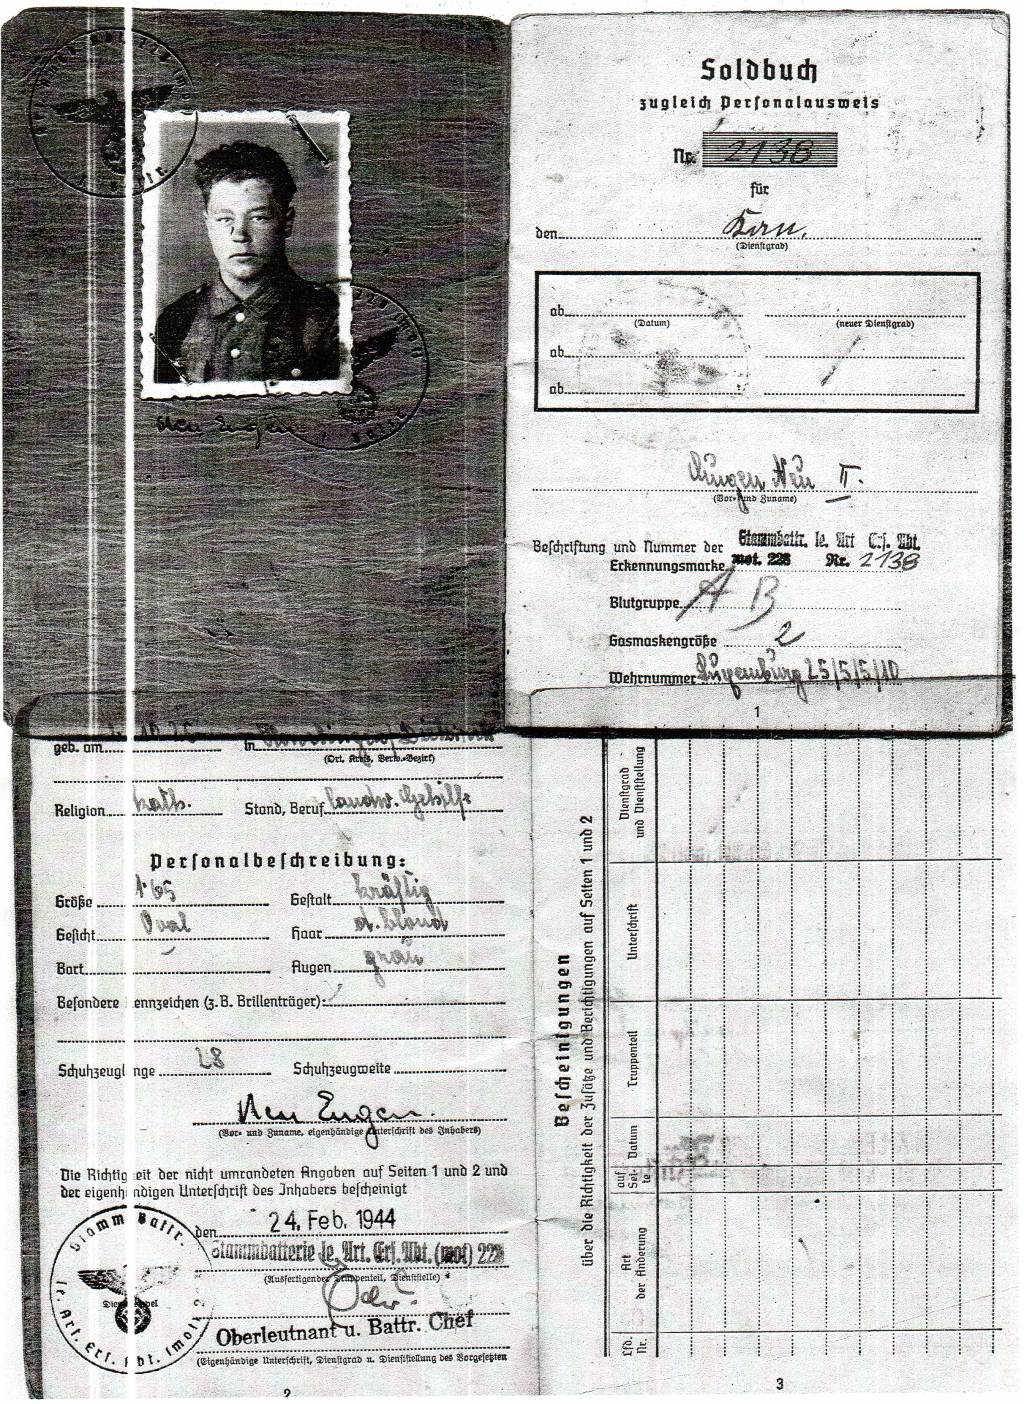 Neu Eugen
Soldbuch
zugleich Personalausweis
Nr. 2138
für
den Kan.
(Dienstgrad)
ab
(Datum)
(neuer Dienstgrad)
ab
ab
Neu II.
(Vor- und Zuname)
Beschriftung und Nummer der
Erkennungsmarke
Stammbattr. le. Art Ers. Abt.
mot. 228 Nr. 2138
Blutgruppe AB
Gasmaskengröße 2
Wehrnummer Luxemburg 25/5/5/10
1
geb. am
in
(Ort, Kreis, Verw.-Bezirk)
Religion kath.
Stand, Beruf landw. Gehilfe
Personalbeschreibung:
Größe 1.65
Gestalt kräftig
Gesicht Oval
Haar d. blond
Bart
Augen grau
Besondere ennzeichen (z. B. Brillenträger):
Schuhzeugl nge 28
Schuhzeugweite
Neu Eugen.
(Vor- und Zuname, eigenhändige Unterschrift des Inhabers)
Die Richtigkeit der nicht umrandeten Angaben auf Seiten 1 und 2 und
der eigenhändigen Unterschrift des Inhabers bescheinigt
den 24. Feb. 1944
Stammbatterie le. Art. Ers. Abt. (mot) 228
(Ausfertigender Truppenteil, Dienststelle)
Stamm Battr.
le. Art. Ers. Abt. (mot)
Oberleutnant u. Battr. Chef
(Eigenhändige Unterschrift, Dienstgrad u. Dienststellung des Vorgesetzten
2
Bescheinigungen
über die Richtigkeit der Zusätze und Berichtigungen auf Seiten 1 und 2
Lfd. Nr.
Art der Änderung
auf Seite
Datum
Truppenteil
Unterschrift
Dienstgrad und Dienststellung
3